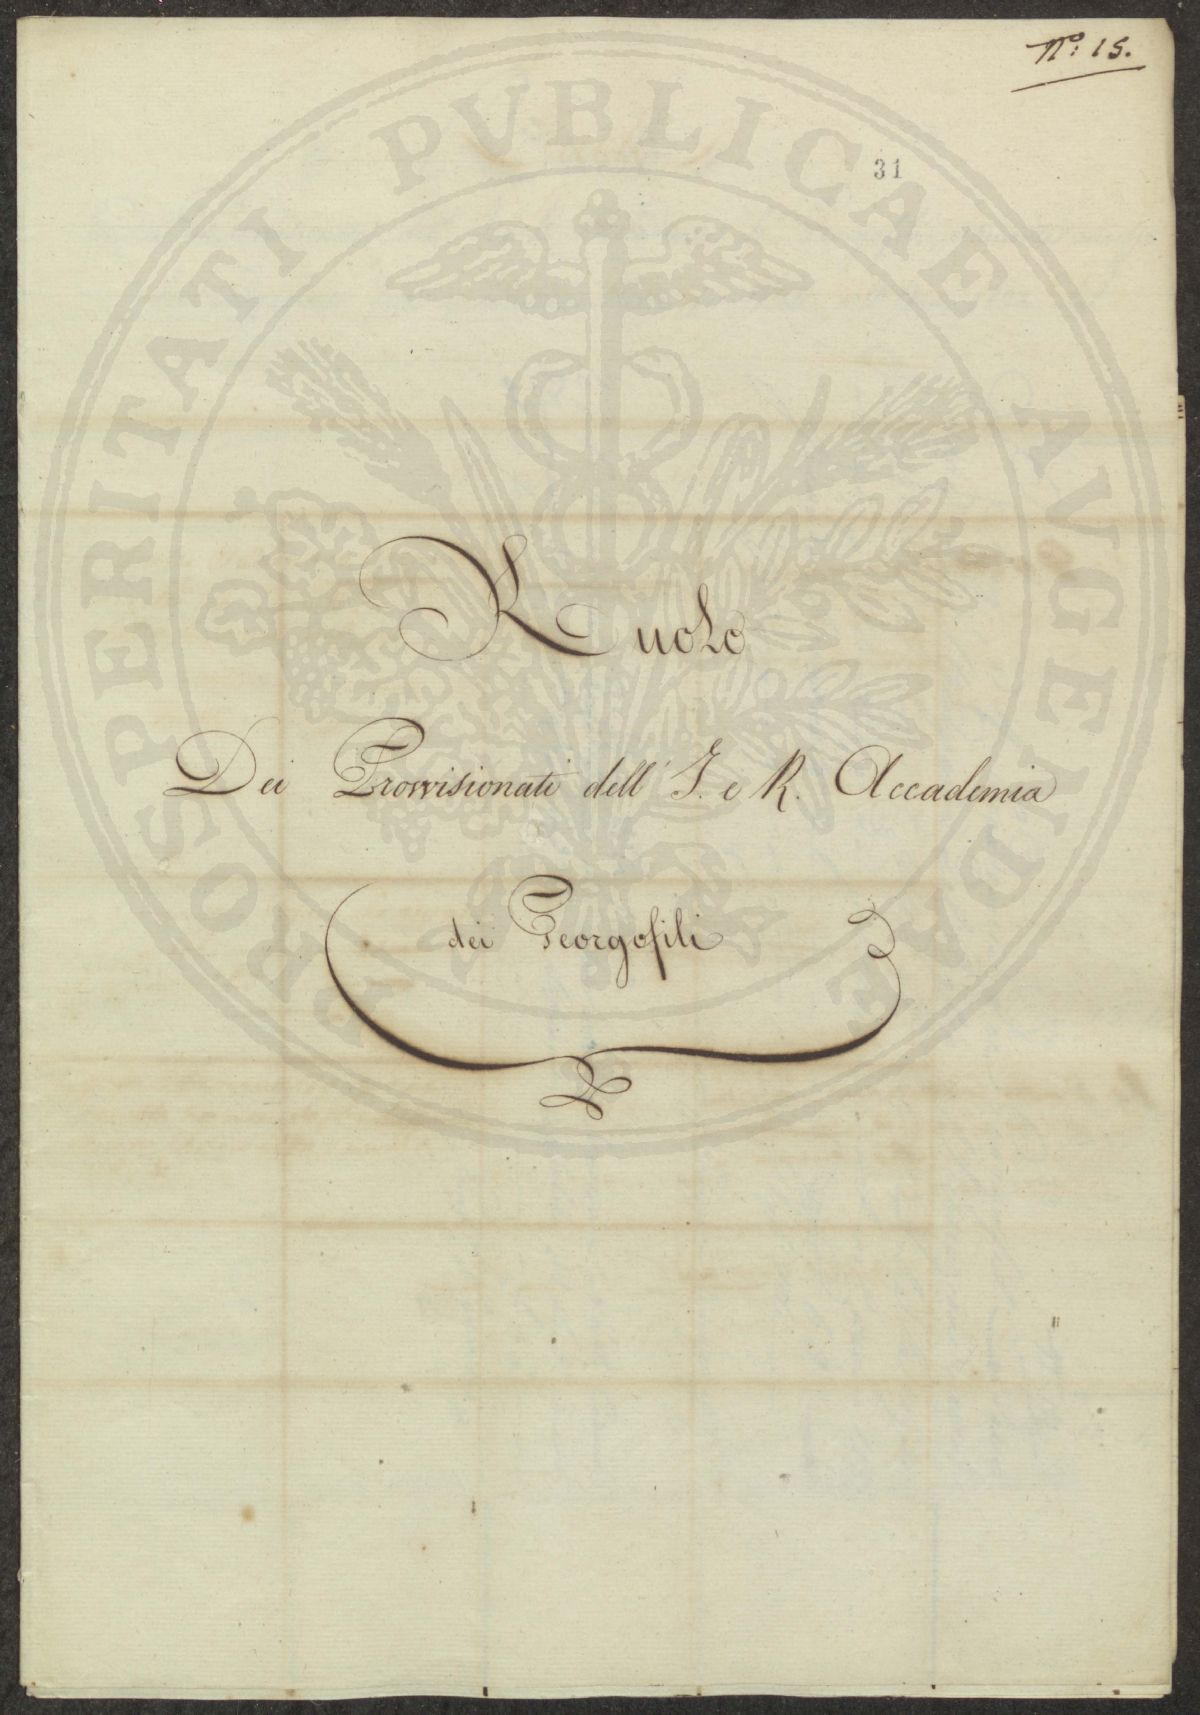 N.º 15.
31
PROSPERITATI PUBLICAE AVGENDAE
Ruolo
Dei Provvisionati dell' I. e R. Accademia
dei Georgofili